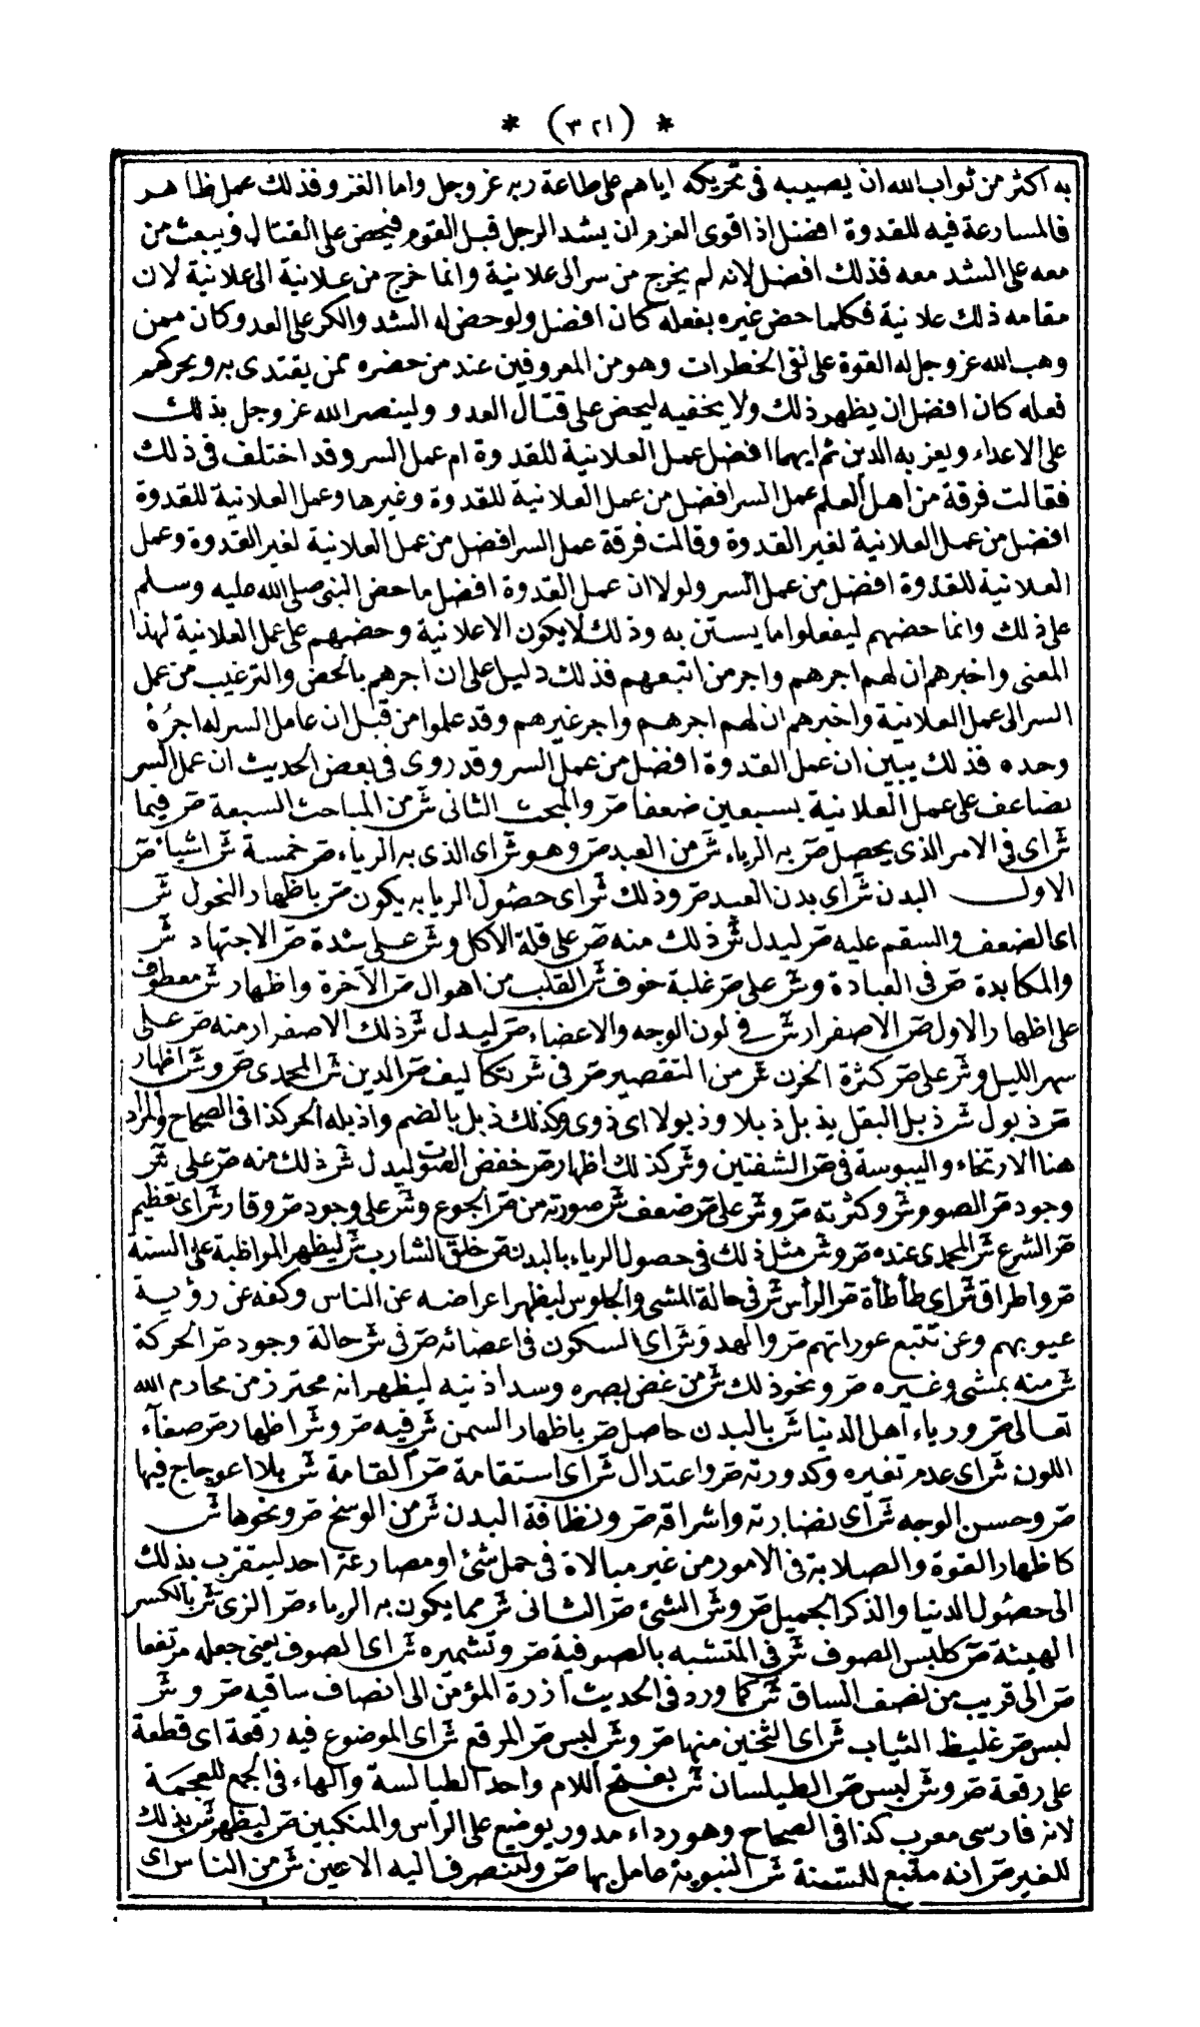 * (٣٢١) *
به اكثر من ثواب الله ان يصيبه فى تحريكه اياهم على طاعة ربه عز وجل واما الغزو فذلك عمل ظاهر
فالمسارعة فيه للقدوة افضل اذا قوى العزم ان يشد الرجل قبل القوم فيحض على القتال ويبعث من
معه على الشد معه فذلك افضل لانه لم يخرج من سر الى علانية وانما خرج من علانية الى علانية لان
مقامه ذلك علانية فكلما حض غيره بفعله كان افضل ولو حض له الشد والكر على العدو وكان ممن
وهب الله عز وجل له القوة على نفى الخطرات وهو من المعروفين عند من حضره ممن يقتدى به ويحركهم
فعله كان افضل ان يظهر ذلك ولا يخفيه ليحض على قتال العدو ولينصر الله عز وجل بذلك
على الاعداء ويعز به الدين ثم ايهما افضل عمل العلانية للقدوة ام عمل السر وقد اختلف فى ذلك
فقالت فرقة من اهل العلم عمل السر افضل من عمل العلانية للقدوة وغيرها وعمل العلانية للقدوة
افضل من عمل العلانية لغير القدوة وقالت فرقة عمل السر افضل من عمل العلانية لغير القدوة وعمل
العلانية للقدوة افضل من عمل السر ولولا ان عمل القدوة افضل ما حض النبى صلى الله عليه وسلم
على ذلك وانما حضهم ليفعلوا ما يستن به وذلك لا يكون الا علانية وحضهم على عمل العلانية لهذا
المعنى واخبرهم ان لهم اجرهم واجر من اتبعهم فذلك دليل على ان اجرهم بالحض والترغيب من عمل
السر الى عمل العلانية واخبرهم ان لهم اجرهم واجر غيرهم وقد علموا من قبل ان عامل السر له اجره
وحده فذلك يبين ان عمل القدوة افضل من عمل السر وقد روى فى بعض الحديث ان عمل السر
يضاعف على عمل العلانية بسبعين ضعفا ص والمبحث الثانى ش من المباحث السبعة ص فيما
ش اى فى الامر الذى يحصل ص به الرياء ش من العبد ص وهو ش اى الذى به الرياء ص خمسة ش اشياء ص
الاول البدن ش اى بدن العبد ص وذلك ش اى حصول الريا به يكون ص باظهار النحول ش
اى الضعف والسقم عليه ص ليدل ش ذلك منه ص على قلة الاكل و ش على شدة ص الاجتهاد ش
والمكابدة ص فى العبادة و ش على ص غلبة خوف ش القلب من اهوال ص الآخرة واظهار ش معطوف
على اظهار الاول ص الاصفرار ش فى لون الوجه والاعضاء ص ليدل ش ذلك الاصفرار منه ص على
سهر الليل و ش على ص كثرة الحزن ش من التقصير ص فى ش تكاليف ص الدين ش المحمدى ص و ش اظهار
ص ذبول ش ذبل البقل يذبل ذبلا وذبولا اى ذوى وكذلك ذبل بالضم واذبله الحر كذا فى الصحاح والمراد
هنا الارتخاء واليبوسة فى ص الشفتين و ش كذلك اظهار ص خفض الصوت ليدل ش ذلك منه ص على ش
وجود ص الصوم و ش وكثرته ص و ش على ص ضعف ش صورته من ص الجوع و ش على وجود ص وقار ش اى تعظيم
ص الشرع ش المحمدى عنده ص و ش مثل ذلك فى حصول الرياء بالبدن ص حلق الشارب ش ليظهر المواظبة على السنة
ص واطراق ش اى طأطأة ص الرأس ش فى حالة المشى والجلوس ليظهر اعراضه عن الناس وكفه عن رؤية
عيوبهم وعن تتبع عوراتهم ص والهدو ش اى السكون فى اعضائه ص فى ش حالة وجود ص الحركة
ش منه بمشى وغيره ص ونحو ذلك ش من غض بصره وسد اذنيه ليظهر انه محترز من محارم الله
تعالى ص ورياء اهل الدنيا ش بالبدن حاصل ص باظهار السمن ش فيه ص و ش اظهار ص صفآء
اللون ش اى عدم تغيره وكدورته ص واعتدال ش اى استقامة ص القامة ش بلا اعوجاج فيها
ص وحسن الوجه ش اى نضارته واشراقه ص ونظافة البدن ش من الوسخ ص ونحوها ش
كاظهار القوة والصلابة فى الامور من غير مبالاة فى حمل شئ او مصارعة احد ليتقرب بذلك
الى حصول الدنيا والذكر الجميل ص و ش الشئ ص الثانى ش مما يكون به الرياء ص الزى ش بالكسر
الهيئة ص كلبس الصوف ش فى المتشبه بالصوفية ص وتشميره ش اى الصوف يعنى جعله مرتفعا
ص الى قريب من نصف الساق ش كما ورد فى الحديث ازرة المؤمن الى انصاف ساقيه ص و ش
لبس ص غليظ الثياب ش اى الثخين منها ص و ش لبس ص المرقع ش اى الموضوع فيه رقعة اى قطعة
على رقعة ص و ش لبس ص الطيلسان ش بفتح اللام واحد الطيالسة والهاء فى الجمع للعجمة
لانه فارسى معرب كذا فى الصحاح وهو رداء مدور يوضع على الرأس والمنكبين ص ليظهر ش بذلك
للغير ص انه متبع للسنة ش النبوية عامل بها ص ولتنصرف اليه الاعين ش من الناس اى